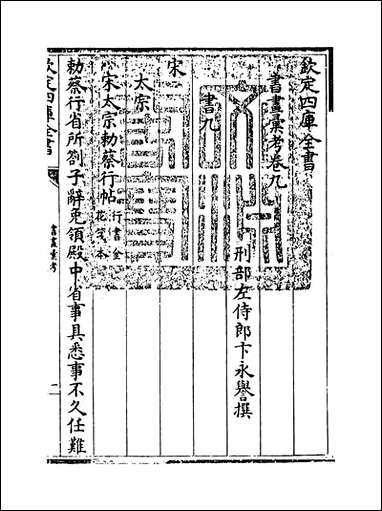 欽定四庫全書
書畫彙考卷九
刑部左侍郎卞永譽撰
書九
宋
太宗
宋太宗勅蔡行帖
行書金
花箋本
勅蔡行省所劄子辭免領殿中省事具悉事不久任難
欽定四庫全書
書畫彙考